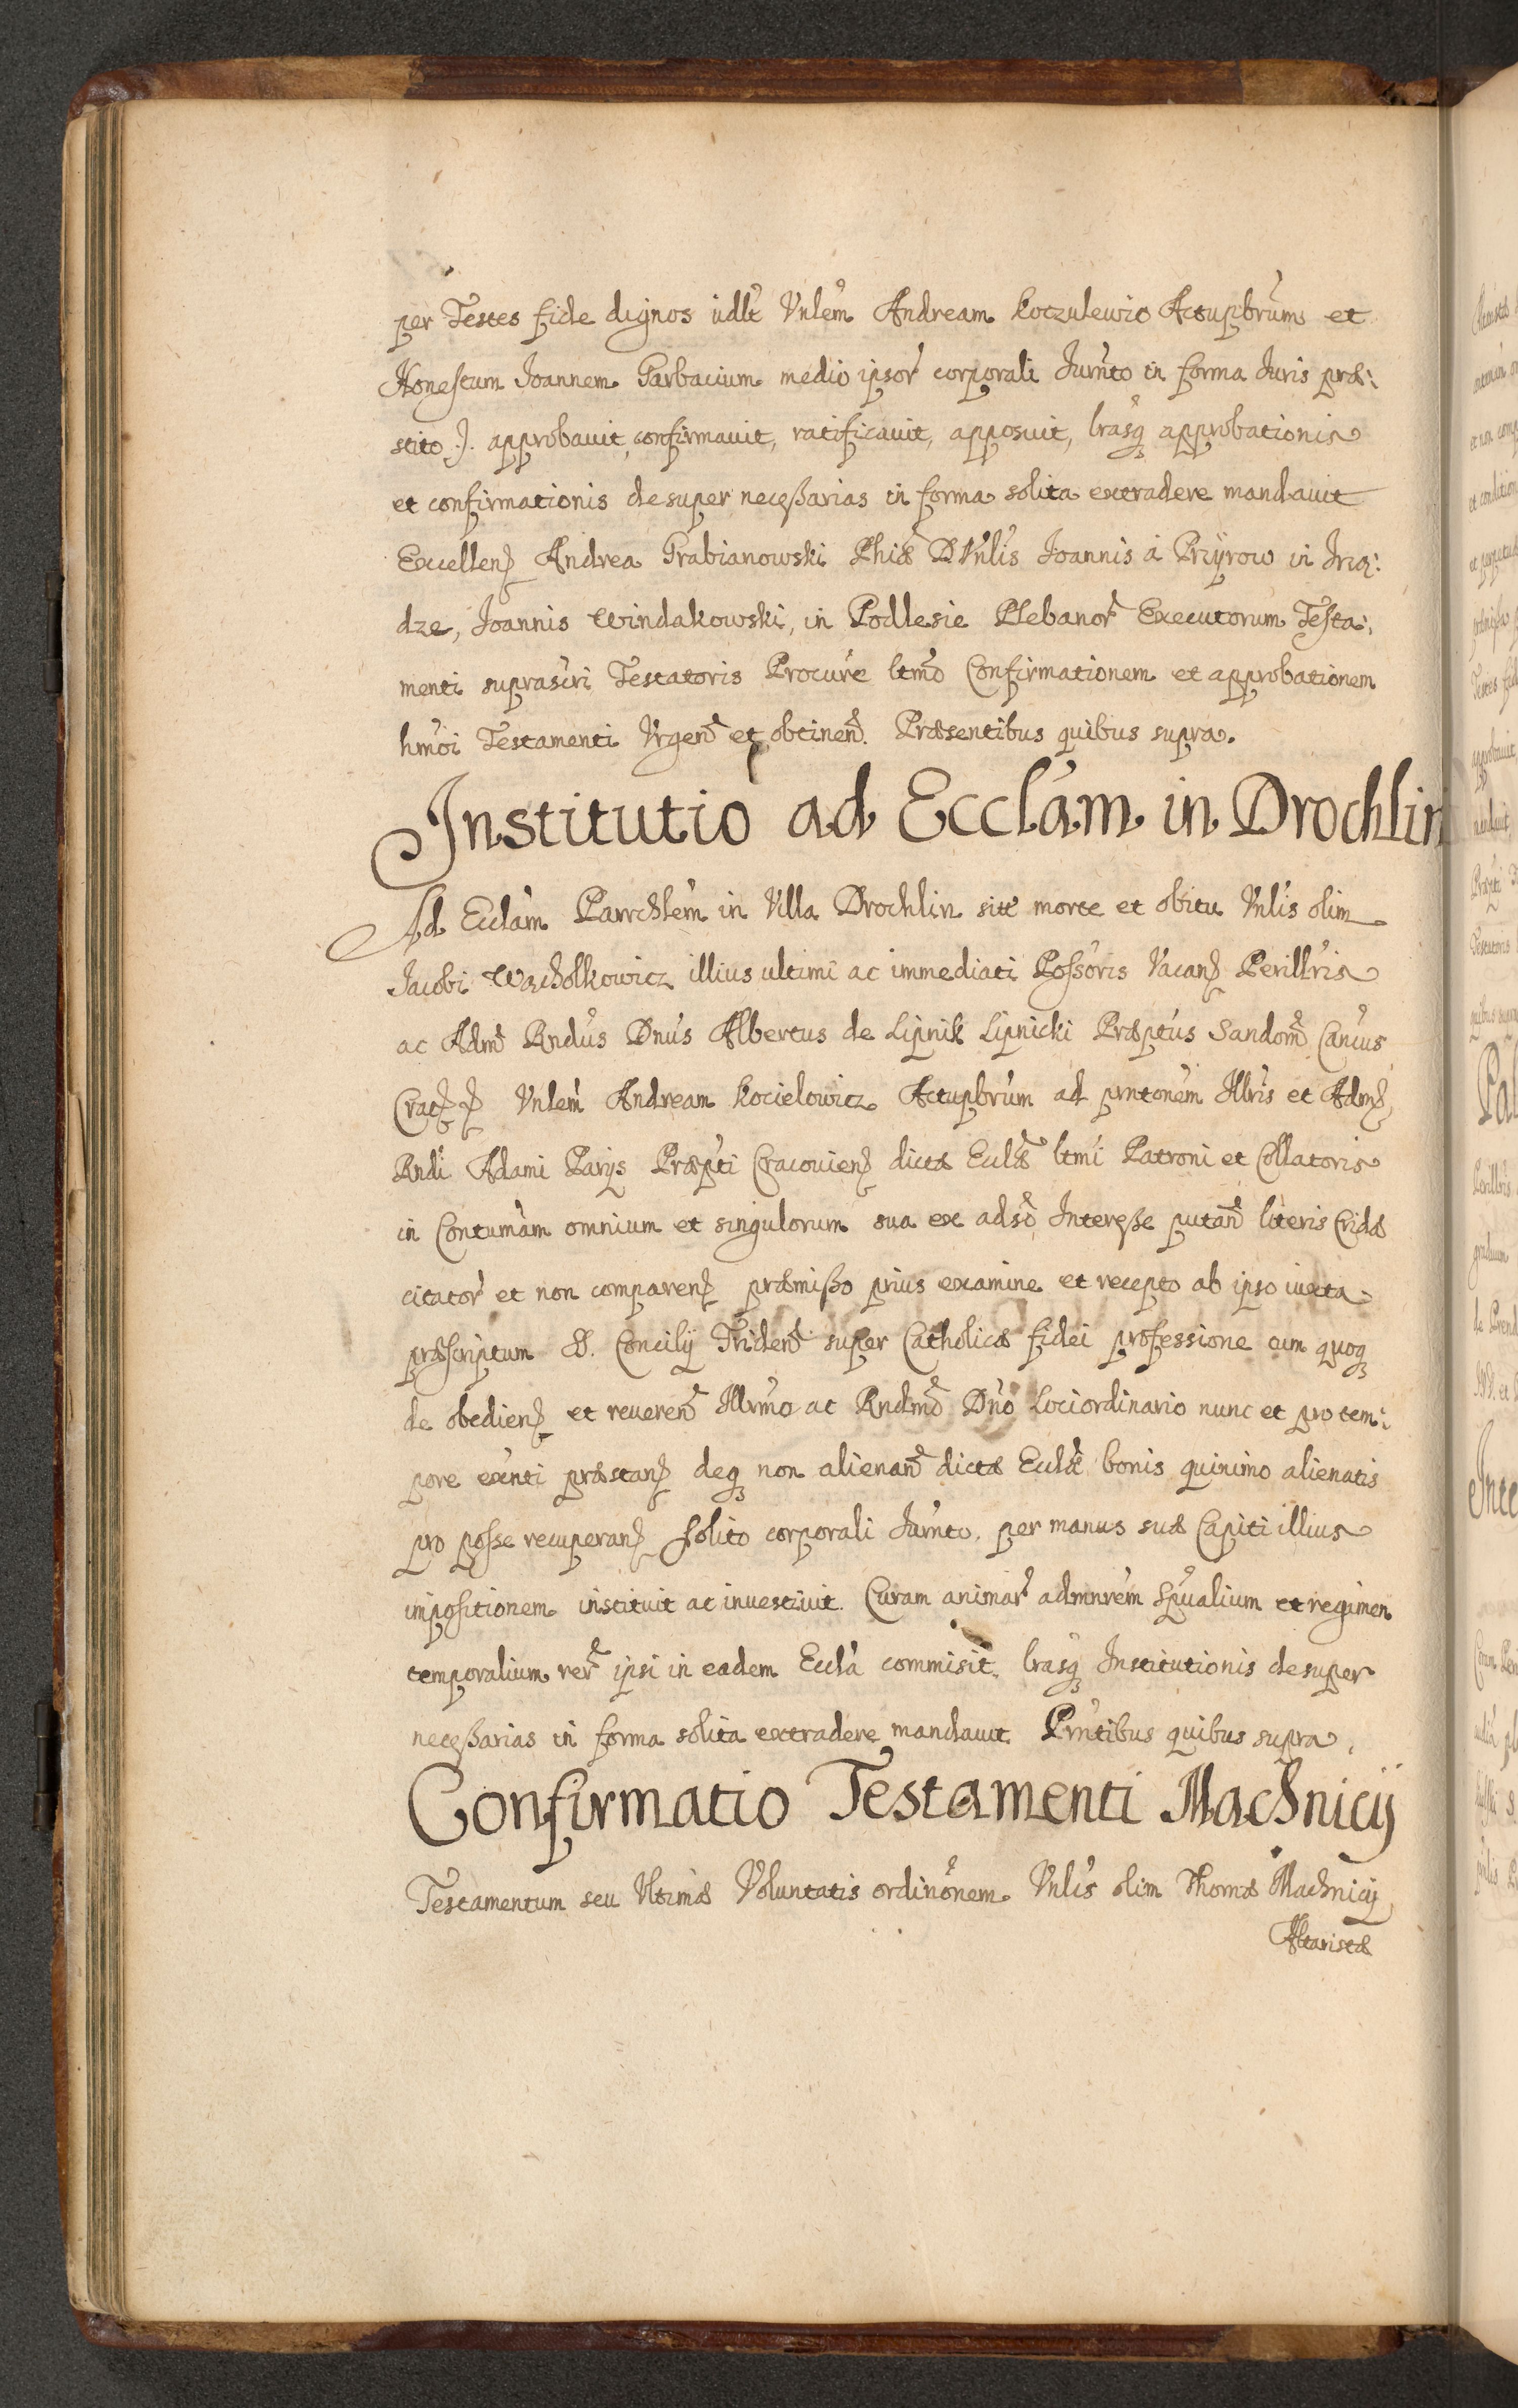 per Testes fide dignos údlt Vnlem̃ Andream Koczulewic Actupbrum̃ et
Honestum Joannem Garbacium medio ipsor̃ corporali Jurn̄to in forma Juris præ:
stito ). approbauit, confirmauit, ratificauit, apposuit, lrãsq̨ approbationis
et confirmationis desuper neceßarias in forma solita extradere mandauit
Excellenꝭ Andrea Grabianowski Phiæ D Vnlĩs Joannis á Przyrow in Irzą:
dze, Joannis Windakowski, in Podlesie Plebanor̃ Executorum Testa:
menti suprascri Testatoris Procurẽ ltmõ Confirmationem et approbationem
hmõi Testamenti Vrgen̄ et obtinen̄. Præsentibus quibus supra.
Institutio ad Ecclãm in Drochlin
Ad Ecclãm Parrchlẽm in Villa Drochlin sitt̃ morte et obitu Vnlĩs olim
Jacobi Wącholkowicz illius ultimi ac immediati Possõris Vacanꝭ Perillrĩs
ac Adm̃ Rndũs Dnũs Albertus de Lipnik Lipnicki Præptũs Sandom̃ Canc̃us
Cracꝭ Vnlẽm Andream Kocielowicz Actupbrũm ad prntonẽm Illrĩs et Admꝭ
Rndĩ Adami Parijs Præptĩ Cracouienꝭ dictæ Ecclæ̃ ltmĩ Patroni et Collatoris
in Contumãm omnium et singulorum sua ex adsõ Intereße putan̄ literis Cridæ
citator̃ et non comparenꝭ præmißo prius examine et recepto ab ipso iuxta
præscriptum S. Concilij Triden̄ super Catholicæ fidei professione cum quoq̨
de obedienꝭ et reueren̄ Illrmõ ac Rndmõ Dnõ Lociordinario nunc et pro tem:
pore exẽnti præstanꝭ deq̨ non alienan̄ dictæ Ecclæ̃ bonis quinimo alienatis
pro posse recuperanꝭ solito corporali Jurñto. per manus suæ Capiti illius
impositionem instituit ac inuestiuit. Curam animar̃ admnrẽm Spũalium et regimen
temporalium rer̃ ipsi in eadem Ecclã commisit. lrãsq̨ Institutionis desuper
neceßarias in forma solita extradere mandauit. Prñtibus quibus supra.
Confirmatio Testamenti Machnicij
Testamentum seu Vltimæ Voluntatis ordinõnem Vnlĩs olim Thomæ Machnicij
Altaristæ